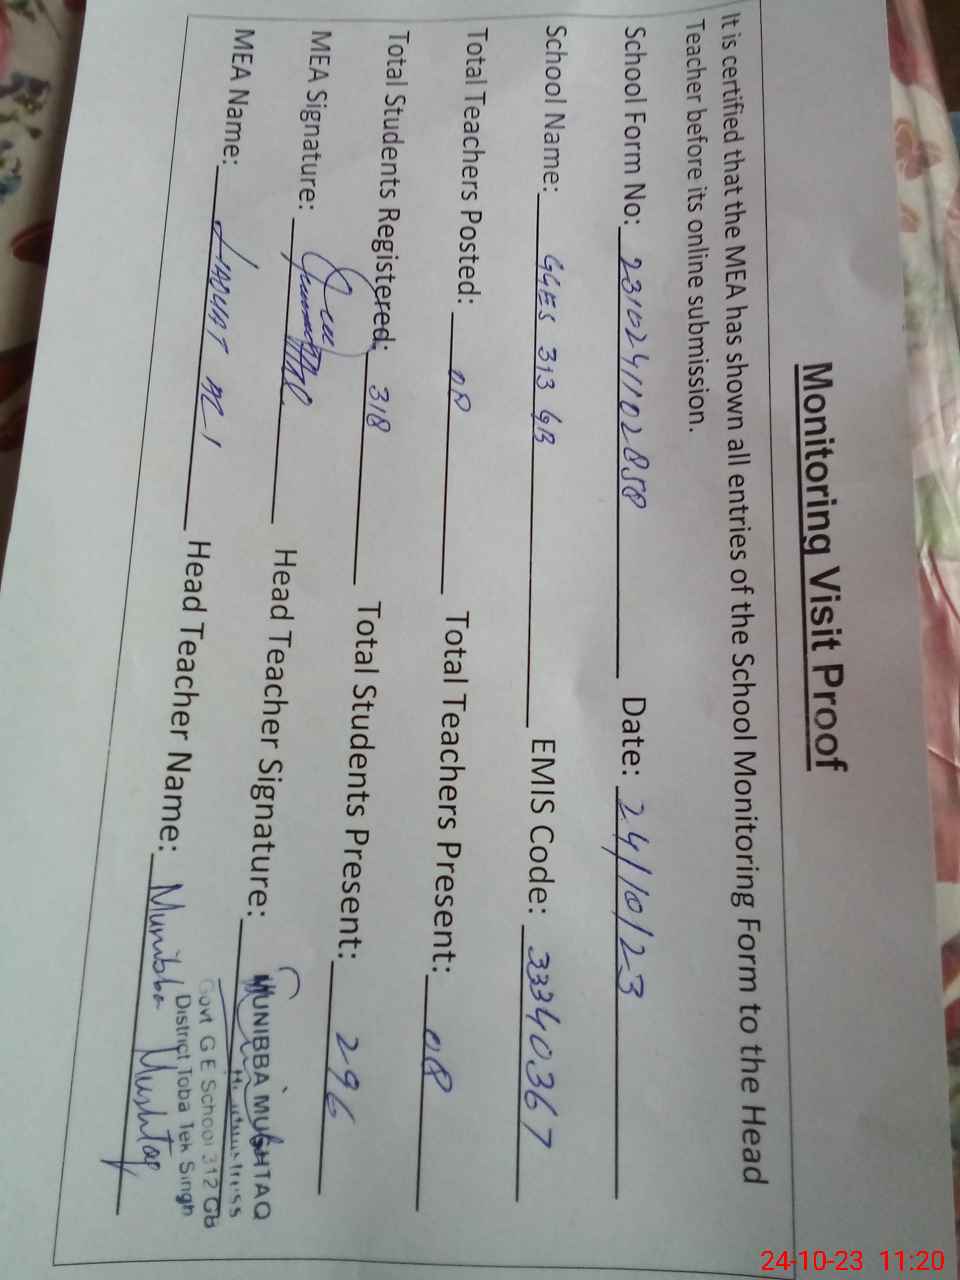 Monitoring Visit Proof
It is certified that the MEA has shown all entries of the School Monitoring Form to the Head
Teacher before its online submission.
School Form No: 2310241102858 Date: 24/10/23
School Name: GGES 313 GB EMIS Code: 33340367
Total Teachers Posted: 08 Total Teachers Present: 08
Total Students Registered: 318 Total Students Present: 296
MEA Signature: Head Teacher Signature:
MUNIBBA MUSHTAQ
Headmistress
Govt G E School 312 GB
District Toba Tek Singh
MEA Name: LIAQUAT ALI Head Teacher Name: Munibba Mushtaq
24-10-23 11:20